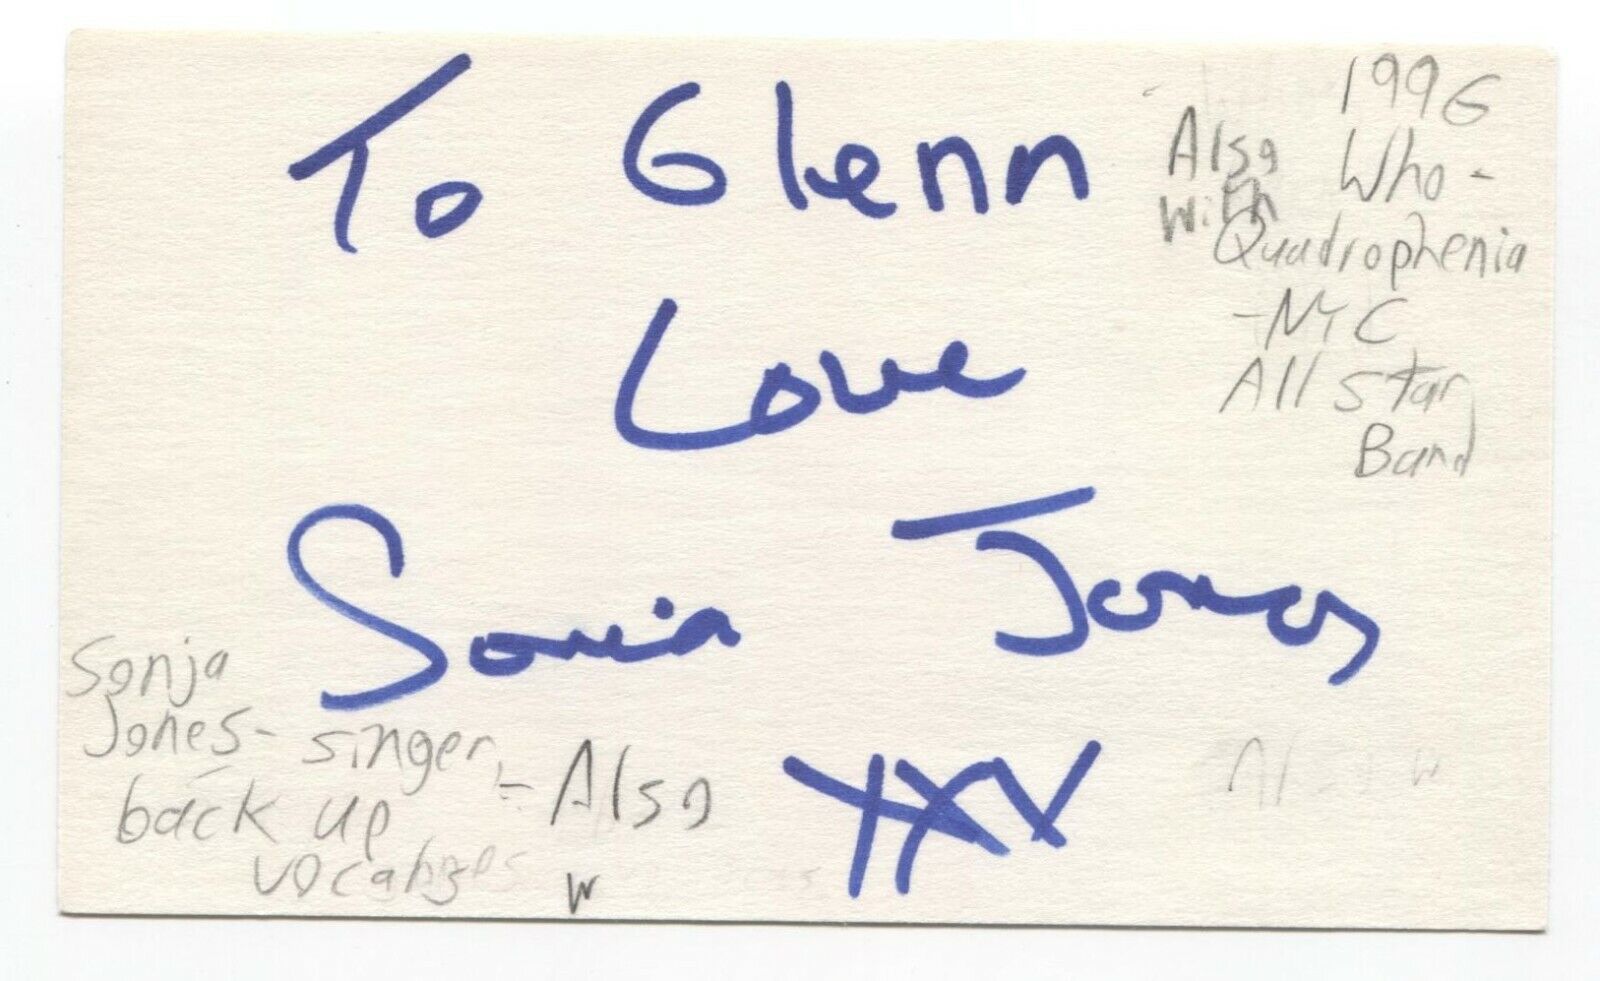 To Glenn
Love
Sonia Jones
XXX
1996
Also Who-
with Quadrophenia
-NYC
All Star
Band
Sonja
Jones- singer,
back up
vocalizes
- Also
w
Also w